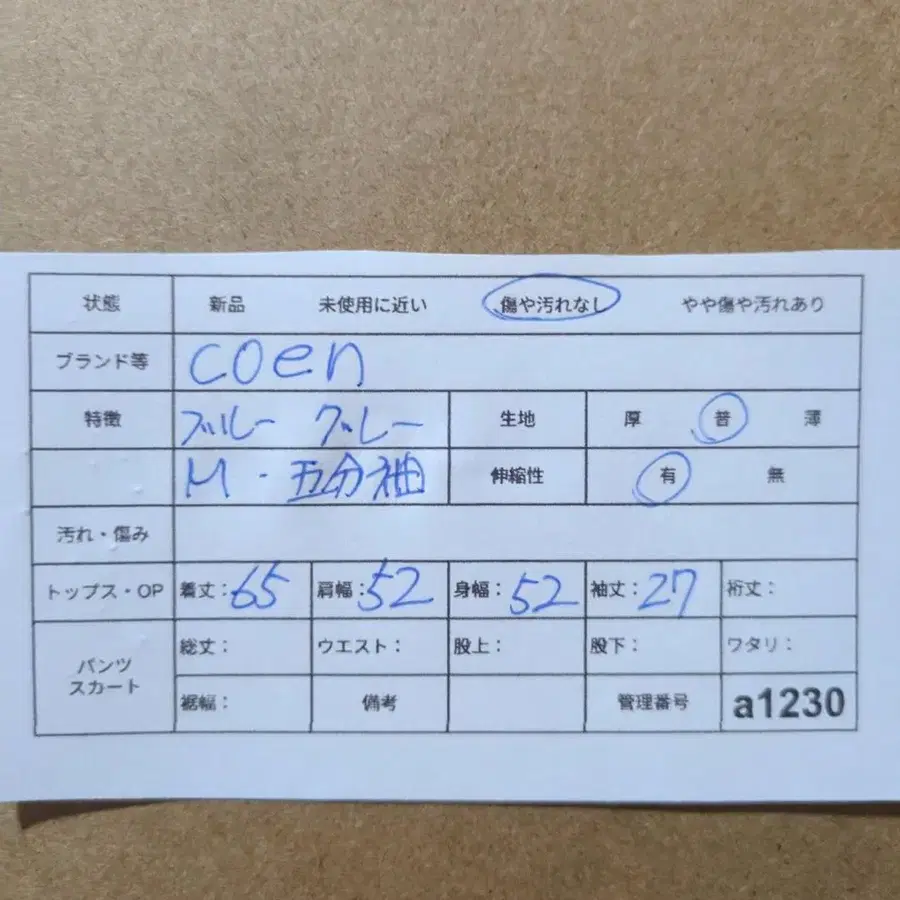 状態 新品 未使用に近い 傷や汚れなし やや傷や汚れあり
ブランド等 coen
特徴 ブルー グレー 生地 厚 普 薄
M・五分袖 伸縮性 有 無
汚れ・傷み
トップス・OP 着丈:65 肩幅:52 身幅:52 袖丈:27 裄丈:
パンツ スカート 総丈: ウエスト: 股上: 股下: ワタリ:
裾幅: 備考 管理番号 a1230